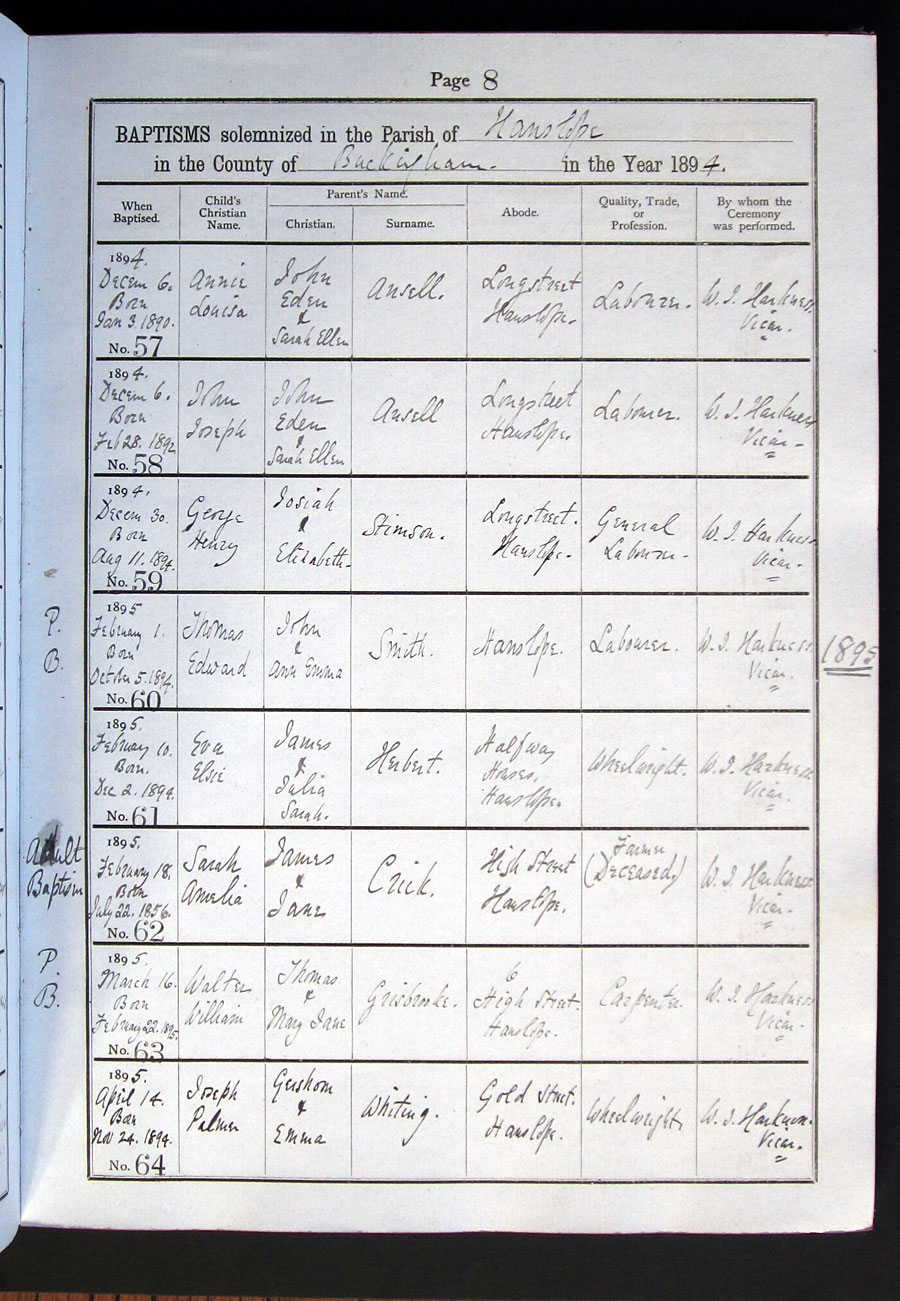 Page 8
BAPTISMS solemnized in the Parish of Hanslope
in the County of Buckingham. in the Year 1894.
When Baptised.
Child's Christian Name.
Parent's Name.
Christian.
Surname.
Abode.
Quality, Trade, or Profession.
By whom the Ceremony was performed.
1894.
Decem 6.
Born
Jan 3. 1890.
No. 57
Annie
Louisa
John
Eden
&
Sarah Ellen
Ansell.
Longstreet
Hanslope.
Labourer.
W. J. Harkness.
Vicar.
1894.
Decem 6.
Born
Feb 28. 1892
No. 58
John
Joseph
John
Eden
&
Sarah Ellen
Ansell
Longstreet
Hanslope.
Labourer.
W. J. Harkness
Vicar-
1894.
Decem 30.
Born
Aug 11. 1894.
No. 59
George
Henry
Josiah
&
Elizabeth.
Stimson.
Longstreet.
Hanslope.
General
Labourer.
W. J. Harkness.
Vicar.
P.
B.
1895
February 1.
Born
October 5. 1894.
No. 60
Thomas
Edward
John
&
Ann Emma
Smith.
Hanslope.
Labourer.
W. J. Harkness.
Vicar.
1895
1895.
February 10.
Born.
Dec 2. 1894.
No. 61
Eva
Elsie
James
&
Julia
Sarah.
Herbert.
Halfway
Houses,
Hanslope.
Wheelwright.
W. J. Harkness
Vicar.
Adult
Baptism
1895.
February 18.
Born
July 22. 1856.
No. 62
Sarah
Amelia
James
&
Jane
Crick.
High Street
Hanslope.
Farmer
(Deceased)
W. J. Harkness.
Vicar.
P.
B.
1895.
March 16.
Born
February 22. 1895.
No. 63
Walter
William
Thomas
&
Mary Jane
Grisbrooke.
6
High Street.
Hanslope.
Carpenter.
W. J. Harkness
Vicar-
1895.
April 14.
Born
Nov 24. 1894.
No. 64
Joseph
Palmer
Gershom
&
Emma
Whiting.
Gold Street.
Hanslope.
Wheelwright
W. J. Harkness.
Vicar.